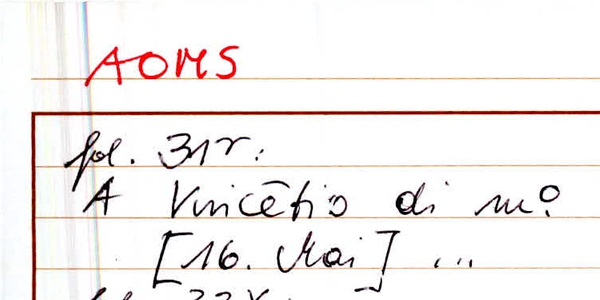 AOMS
fol. 31r:
A Vincētio di m°
[16. Mai] ...